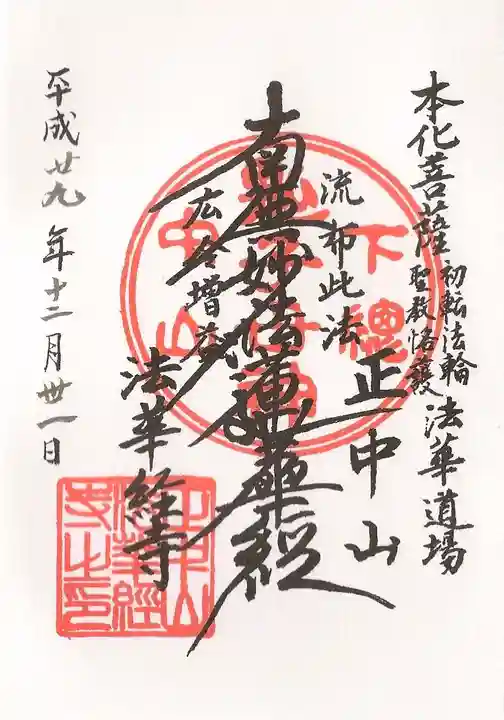 本化菩薩初転法輪聖教恪護法華道場
正中山
流布此法
南無妙法蓮華経
広令増益
法華経寺
平成廿九年十二月丗一日
下總
中山
正中山法華經寺之印